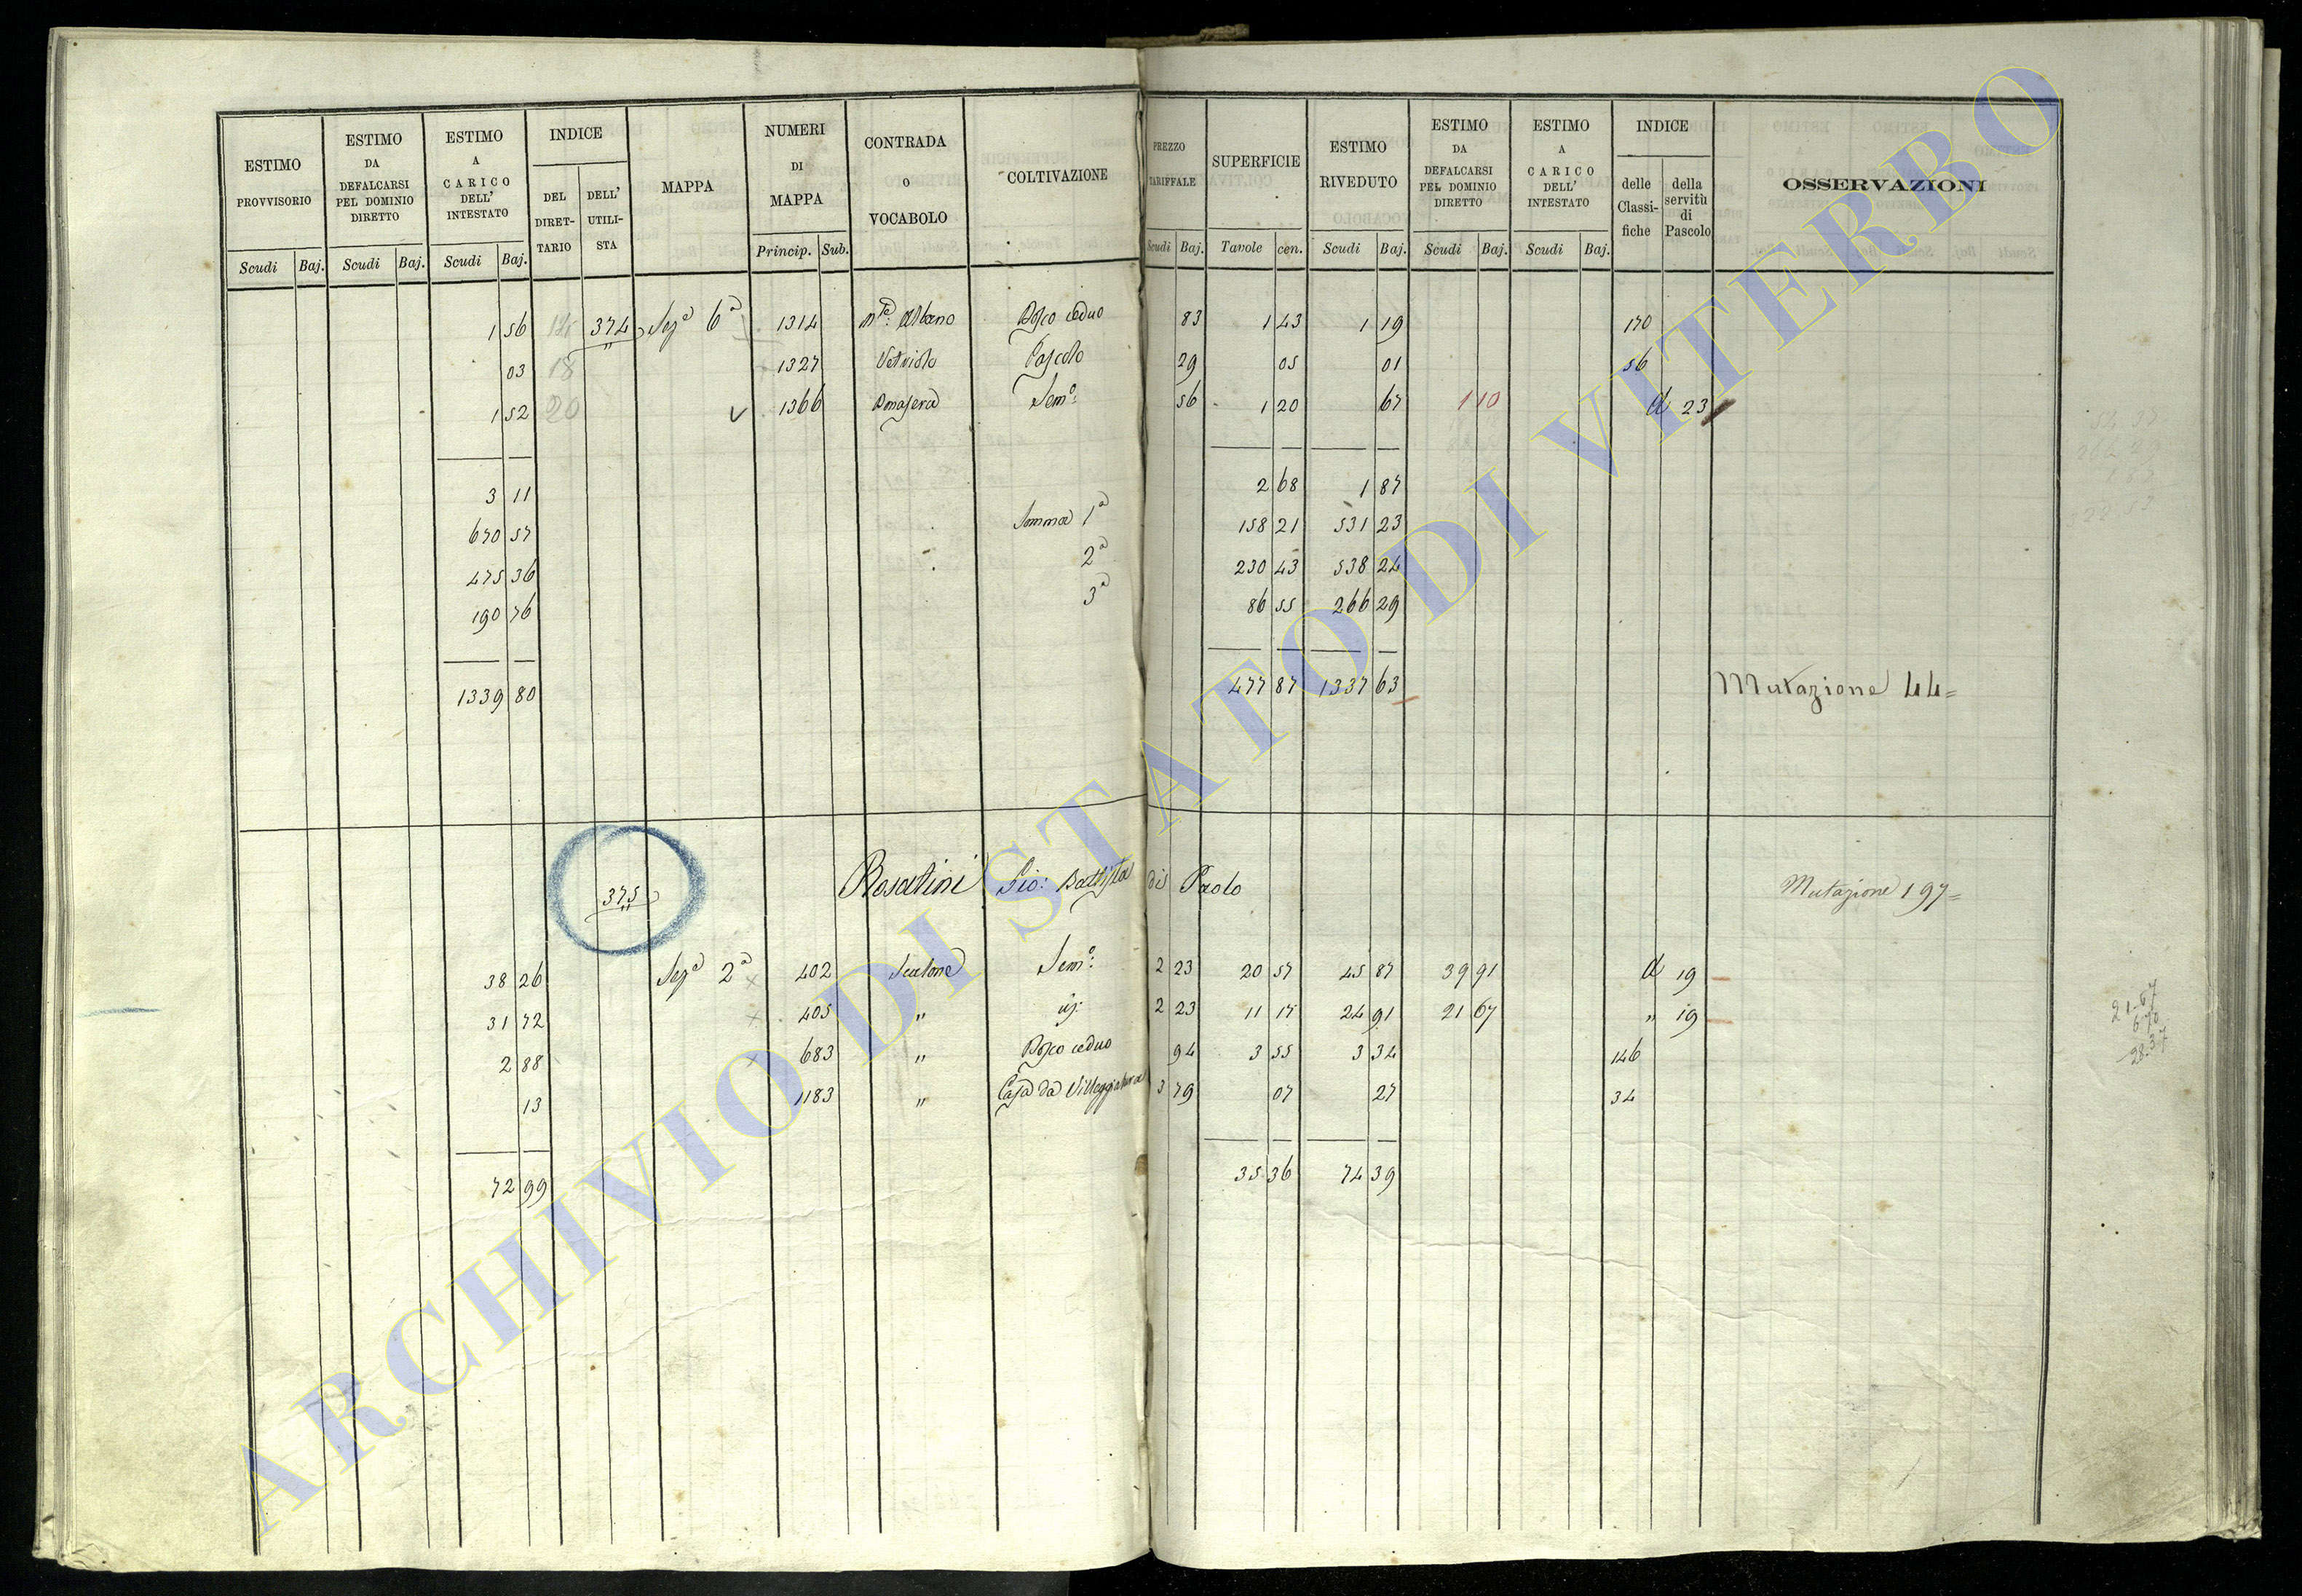 ESTIMO PROVVISORIO Scudi Baj.
ESTIMO DA DEFALCARSI PEL DOMINIO DIRETTO Scudi Baj.
ESTIMO A CARICO DELL' INTESTATO Scudi Baj.
INDICE DEL DIRET-TARIO DELL' UTILI-STA
MAPPA
NUMERI DI MAPPA Princip. Sub.
CONTRADA O VOCABOLO
COLTIVAZIONE
PREZZO TARIFFALE Scudi Baj.
SUPERFICIE Tavole cen.
ESTIMO RIVEDUTO Scudi Baj.
ESTIMO DA DEFALCARSI PEL DOMINIO DIRETTO Scudi Baj.
ESTIMO A CARICO DELL' INTESTATO Scudi Baj.
INDICE delle Classi-fiche della servitù di Pascolo
OSSERVAZIONI
1 56 374 Sezª 6ª 1314 Albano Bosco ceduo 83 1 43 1 19 170
03 18 1327 Pascolo 29 05 01 56
1 52 20 1366 Bonasera Semº: 56 1 20 67 1 10 d 23
3 11 2 68 1 87
670 57 Somma 1ª 158 21 531 23
475 36 2ª 230 43 538 24
190 76 3ª 86 55 266 29
1339 80 477 87 1337 63 Mutazione 44=
375 Rosatini Gio: Battista di Paolo Mutazione 197=
38 26 Sezª 2ª 402 Scalone Semº: 2 23 20 57 45 87 39 91 d 19
31 72 405 " id: 2 23 11 17 24 91 21 67 " 19
2 88 683 " Bosco ceduo 94 3 55 3 34 146
13 1183 " Casa da Villeggiatura 3 79 07 27 34
72 99 35 36 74 39
21-67
6 70
28.37
ARCHIVIO DI STATO DI VITERBO